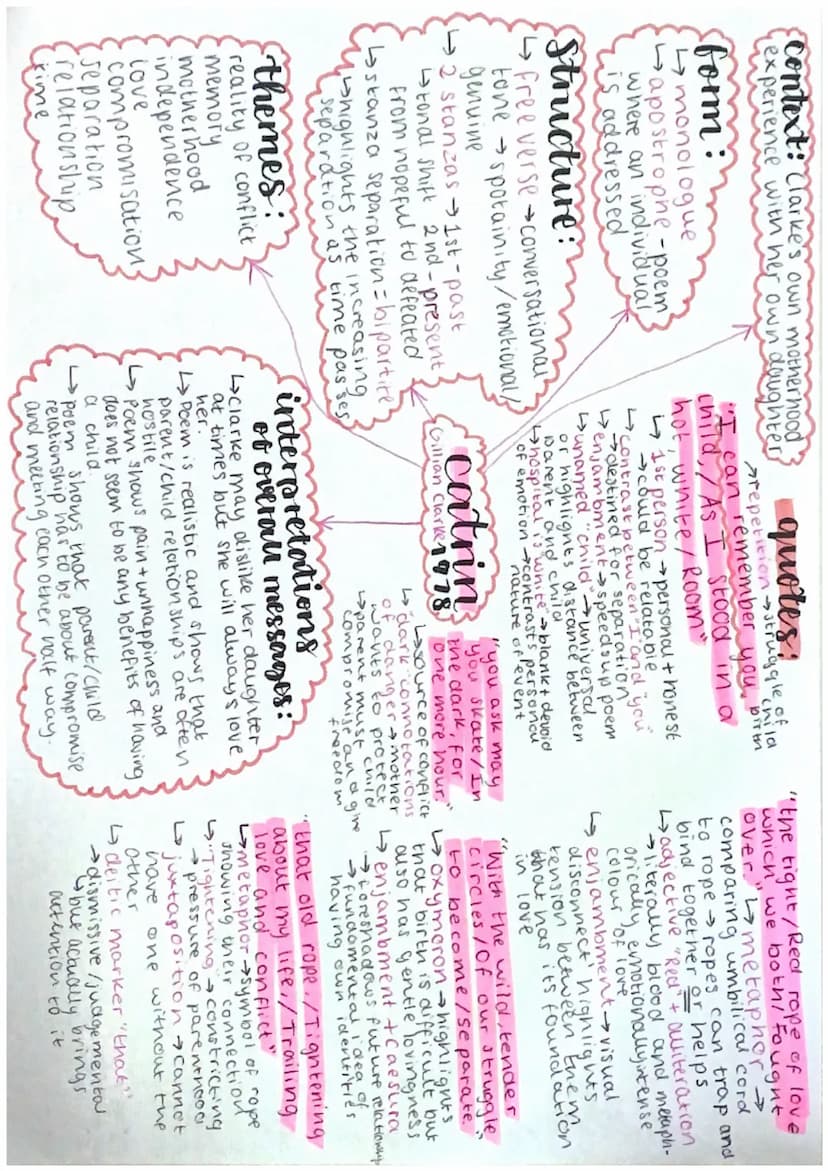 context: Clarke's own motherhood
experience with her own daughter
form:
↳ monologue
↳ apostrophe - poem
where an individual
is addressed
structure:
↳ free verse → conversational
tone → spotainity/emotional/
genuine
↳ 2 stanzas → 1st - past
2nd - present
↳ tonal shift
from hopeful to defeated
↳ stanza separation = bipartite
↳ highlights the increasing
separation as time passes
themes:
reality of conflict
memory
motherhood
independence
love
compromisation
separation
relationship
time
catrin
Gillian Clarke 1978
interpretations
of overall messages:
↳ Clarke may dislike her daughter
at times but she will always love
her.
↳ Poem is realistic and shows that
parent/child relationships are often
hostile
↳ Poem shows pain + unhappiness and
does not seem to be any benefits of having
a child.
↳ Poem shows that parent/child
relationship has to be about compromise
and meeting each other half way.
quotes:
→ repetition → struggle of
child birth
"I can remember you,
child,/As I stood in a
hot, white/Room"
↳ 1st person → personal + honest
→ could be relatable
↳ contrast between "I and you"
→ destined for separation
↳ enjambment → speeds up poem
↳ unnamed "child" → universal
or highlights distance between
parent and child
↳ hospital is "white" → blank + devoid
of emotion → contrasts personal
nature of event
"you ask may
you skate/In
the dark, for
one more hour."
↳ source of conflict
↳ "dark" connotations
of danger → mother
wants to protect
child
↳ parent must
compromise and give
freedom
"the tight/Red rope of love
which we both/Fought
over"
↳ metaphor →
comparing umbilical cord
to rope → ropes can trap and
bind together or helps
↳ adjective "Red" + alliteration
→ literally blood and metaph-
orically emotionally intense
colour of love
↳ enjambment → visual
disconnect highlights
tension between them
that has its foundation
in love
"With the wild, tender
circles/Of our struggle
to become/Separate."
↳ oxymoron → highlights
that birth is difficult but
also has gentle lovingness
↳ enjambment + caesura
→ foreshadows future relationship
→ fundamental idea of
having own identities
"that old rope,/Tightening
about my life,/Trailing
love and conflict"
↳ metaphor → symbol of rope
showing their connection
↳ "Tightening" → constricting
→ pressure of parenthood
↳ juxtaposition → cannot
have one without the
other
↳ deitic marker "that"
→ dismissive/judgemental
↳ but actually brings
attention to it